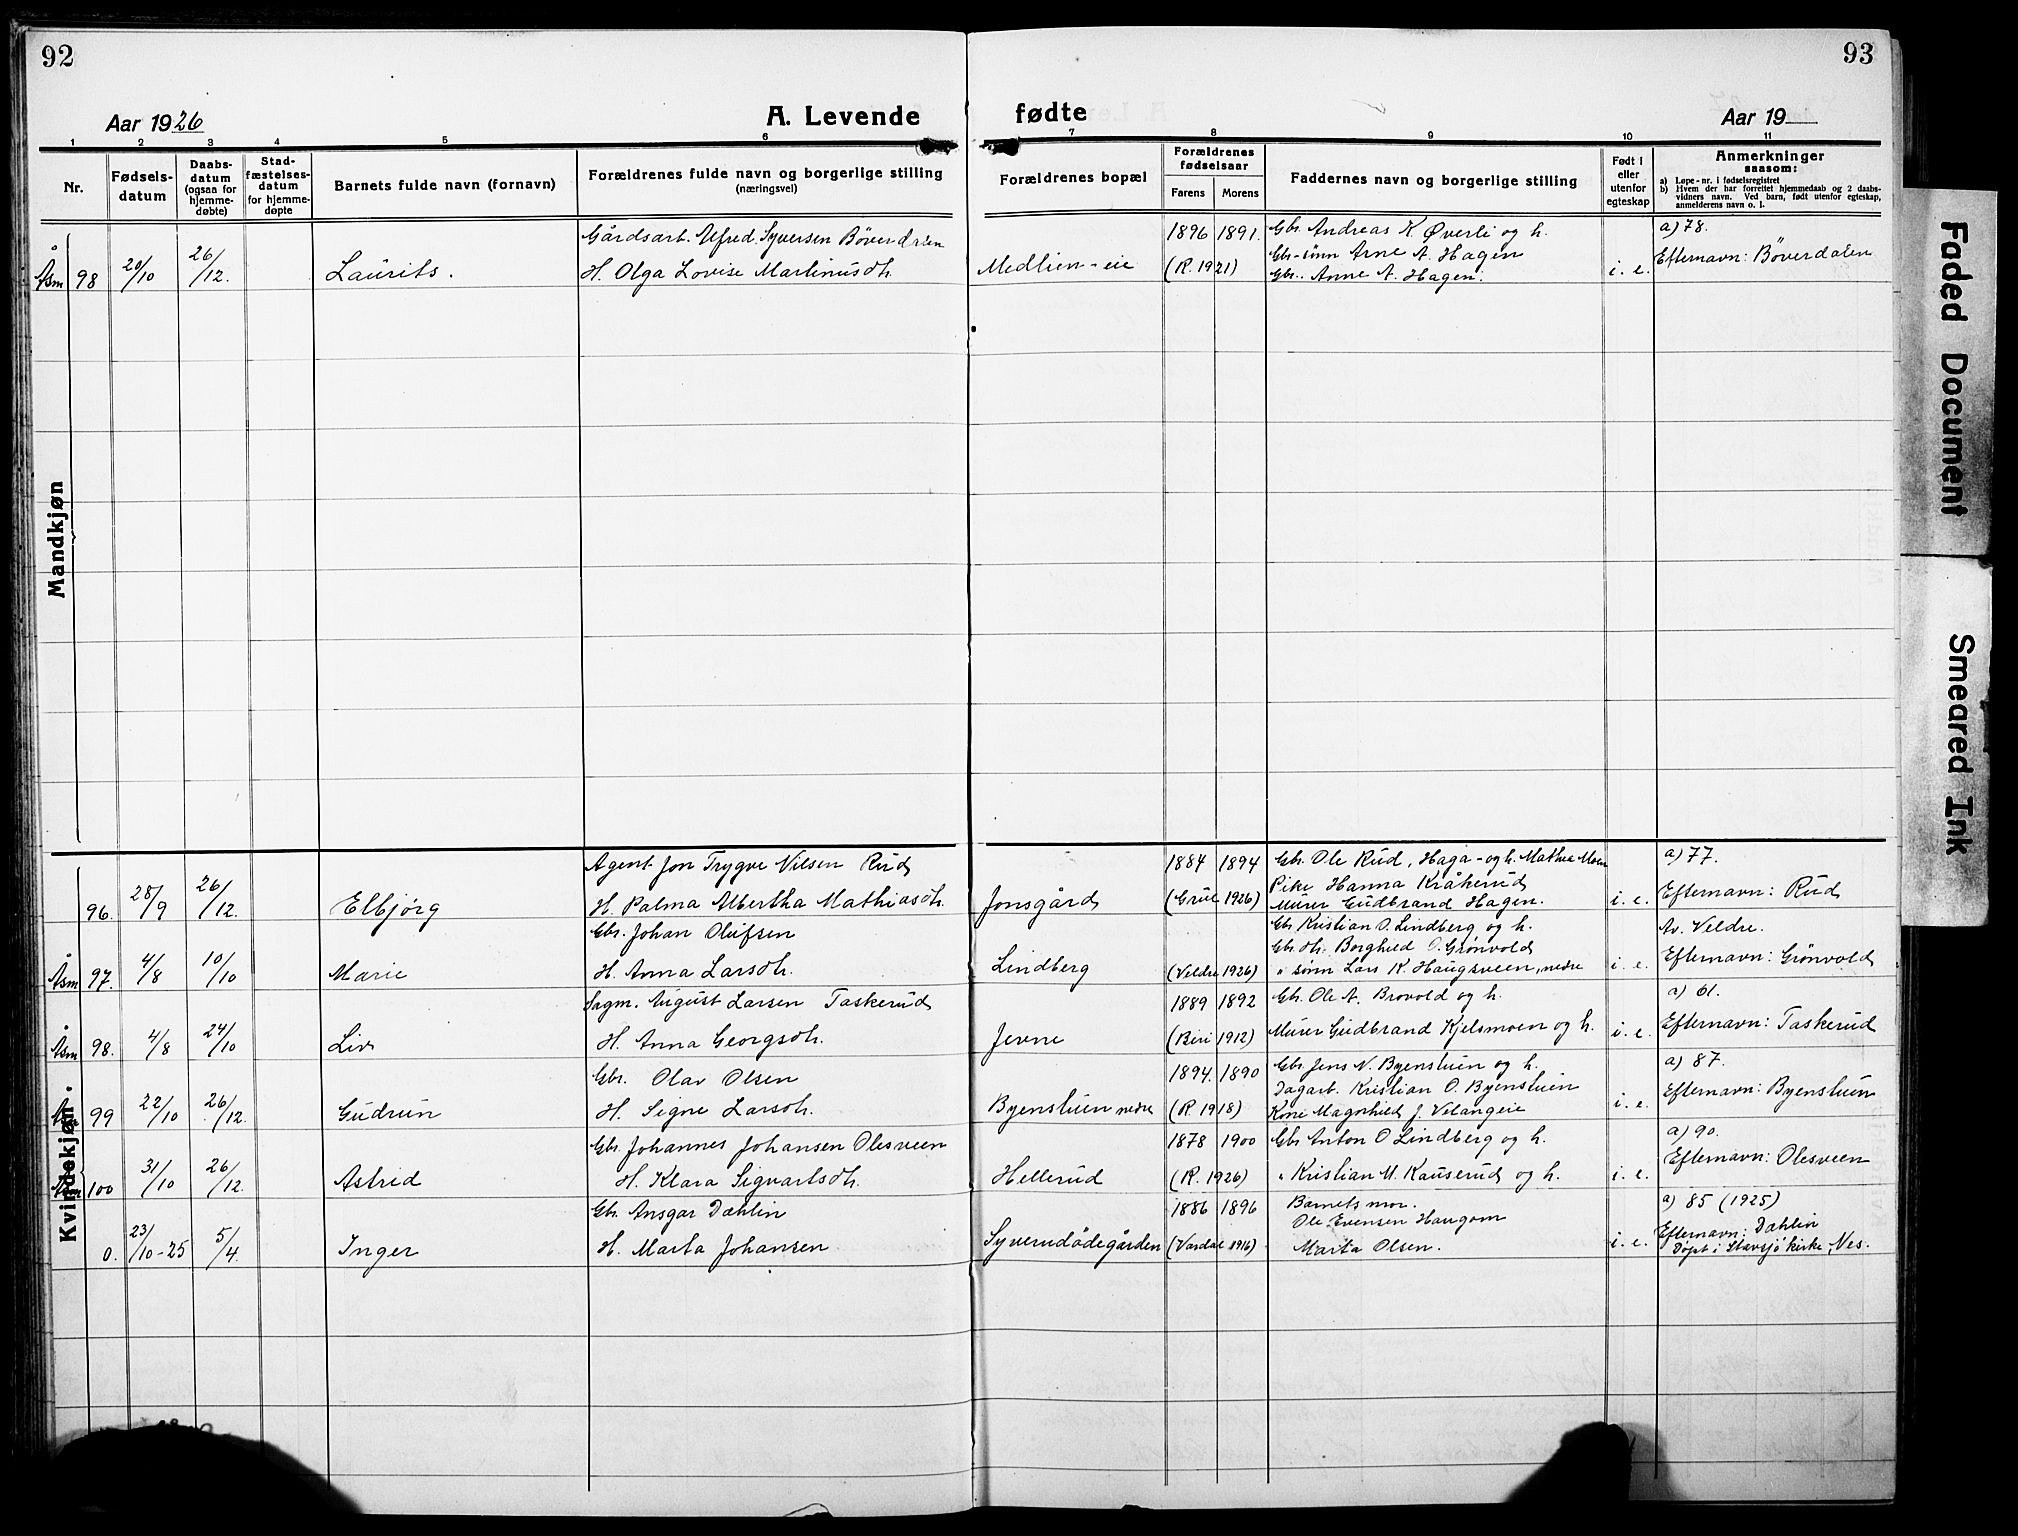 92
93
Aar 1926
A. Levende
fødte
Aar 19
1 2 3 4 5 6 7 8 9 10 11
Nr.
Fødsels-
datum
Daabs-
datum
(ogsaa for
hjemme-
døbte)
Stad-
fæstelses-
datum
for hjemme-
døpte
Barnets fulde navn (fornavn)
Forældrenes fulde navn og borgerlige stilling
(næringsvei)
Forældrenes bopæl
Forældrenes
fødselsaar
Farens Morens
Faddernes navn og borgerlige stilling
Født i
eller
utenfor
egteskap
Anmerkninger
saasom:
a) Løpe-nr. i fødselsregistret
b) Hvem der har forrettet hjemmedaab og 2 daabs-
vidners navn. Ved barn, født utenfor egteskap,
anmelderens navn o. l.
Mandkjøn
Gårdsarb. Alfred Syversen Bøverdalen 1896 1891. Gbr. Andreas K Øverli og h. a) 78.
Gbr-sønn Arne A. Hagen
Åsm 98 20/10 26/12. Laurits. H. Olga Lovise Martinusdtr. Medlien-eie (R. 1921) Gbr. Anne A. Hagen. i. e. Efternavn: Bøverdalen
Kvindekjøn.
Agent Jon Trygve Nilsen Rud 1884 1894 Gbr. Ole Rud, Haga - og h. Mathea Moen a) 77.
Pike Hanna Kråkerud
96. 28/9 26/12. Elbjørg H. Palma Albertha Mathiasdtr. Jonsgård (Grue 1926) Murer Gudbrand Hagen. i. e. Efternavn: Rud
Gbr. Johan Olufsen Gbr Kristian O. Lindberg og h. Av. Veldre.
Gbr dtr. Borghild O. Grønvold
Åsm 97. 4/8 10/10 Marie H. Anna Larsdtr. Lindberg (Veldre 1926) " sønn Lars K. Haugsveen, nedre i. e. Efternavn: Grønvold
Sagm. August Larsen Taskerud 1889 1892 Gbr. Ole A. Brovold og h. a) 61.
Åsm 98. 4/8 24/10 Liv H. Anna Georgsdtr. Jevne (Biri 1912) Murer Gudbrand Kjelsmoen og h. i. e. Efternavn: Taskerud
Gbr. Olav Olsen 1894. 1890 Gbr. Jens N. Byenstuen og h. a) 87.
Dagarb. Kristian O. Byenstuen
Åsm 99 22/10 26/12. Gudrun H. Signe Larsdtr. Byenstuen nedre (R. 1918) Kone Magnhild J. Velangeie i. e. Efternavn: Byenstuen
Gbr. Johannes Johansen Olesveen 1878 1900 Gbr Anton O Lindberg og h. a) 90.
Åsm 100 31/10 26/12. Astrid H. Klara Sigvartsdtr. Hellerud (R. 1926) " Kristian M. Kauserud og h. i. e. Efternavn: Olesveen
Gbr. Ansgar Dæhlin 1886 1896 Barnets mor. a) 85 (1925)
Ole Evensen Haugom
0. 23/10-25 5/4. Inger H. Marta Johansen Syverudødegården (Vardal 1916) Marta Olsen. i. e. Efternavn: Dæhlin
Døpt i Stavsjø kirke, Nes.
Faded Document
Smeared Ink